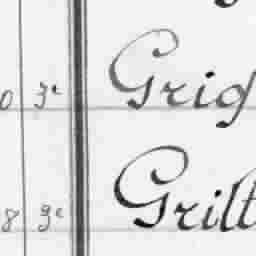 0 3e Grig
8 3e Grilt